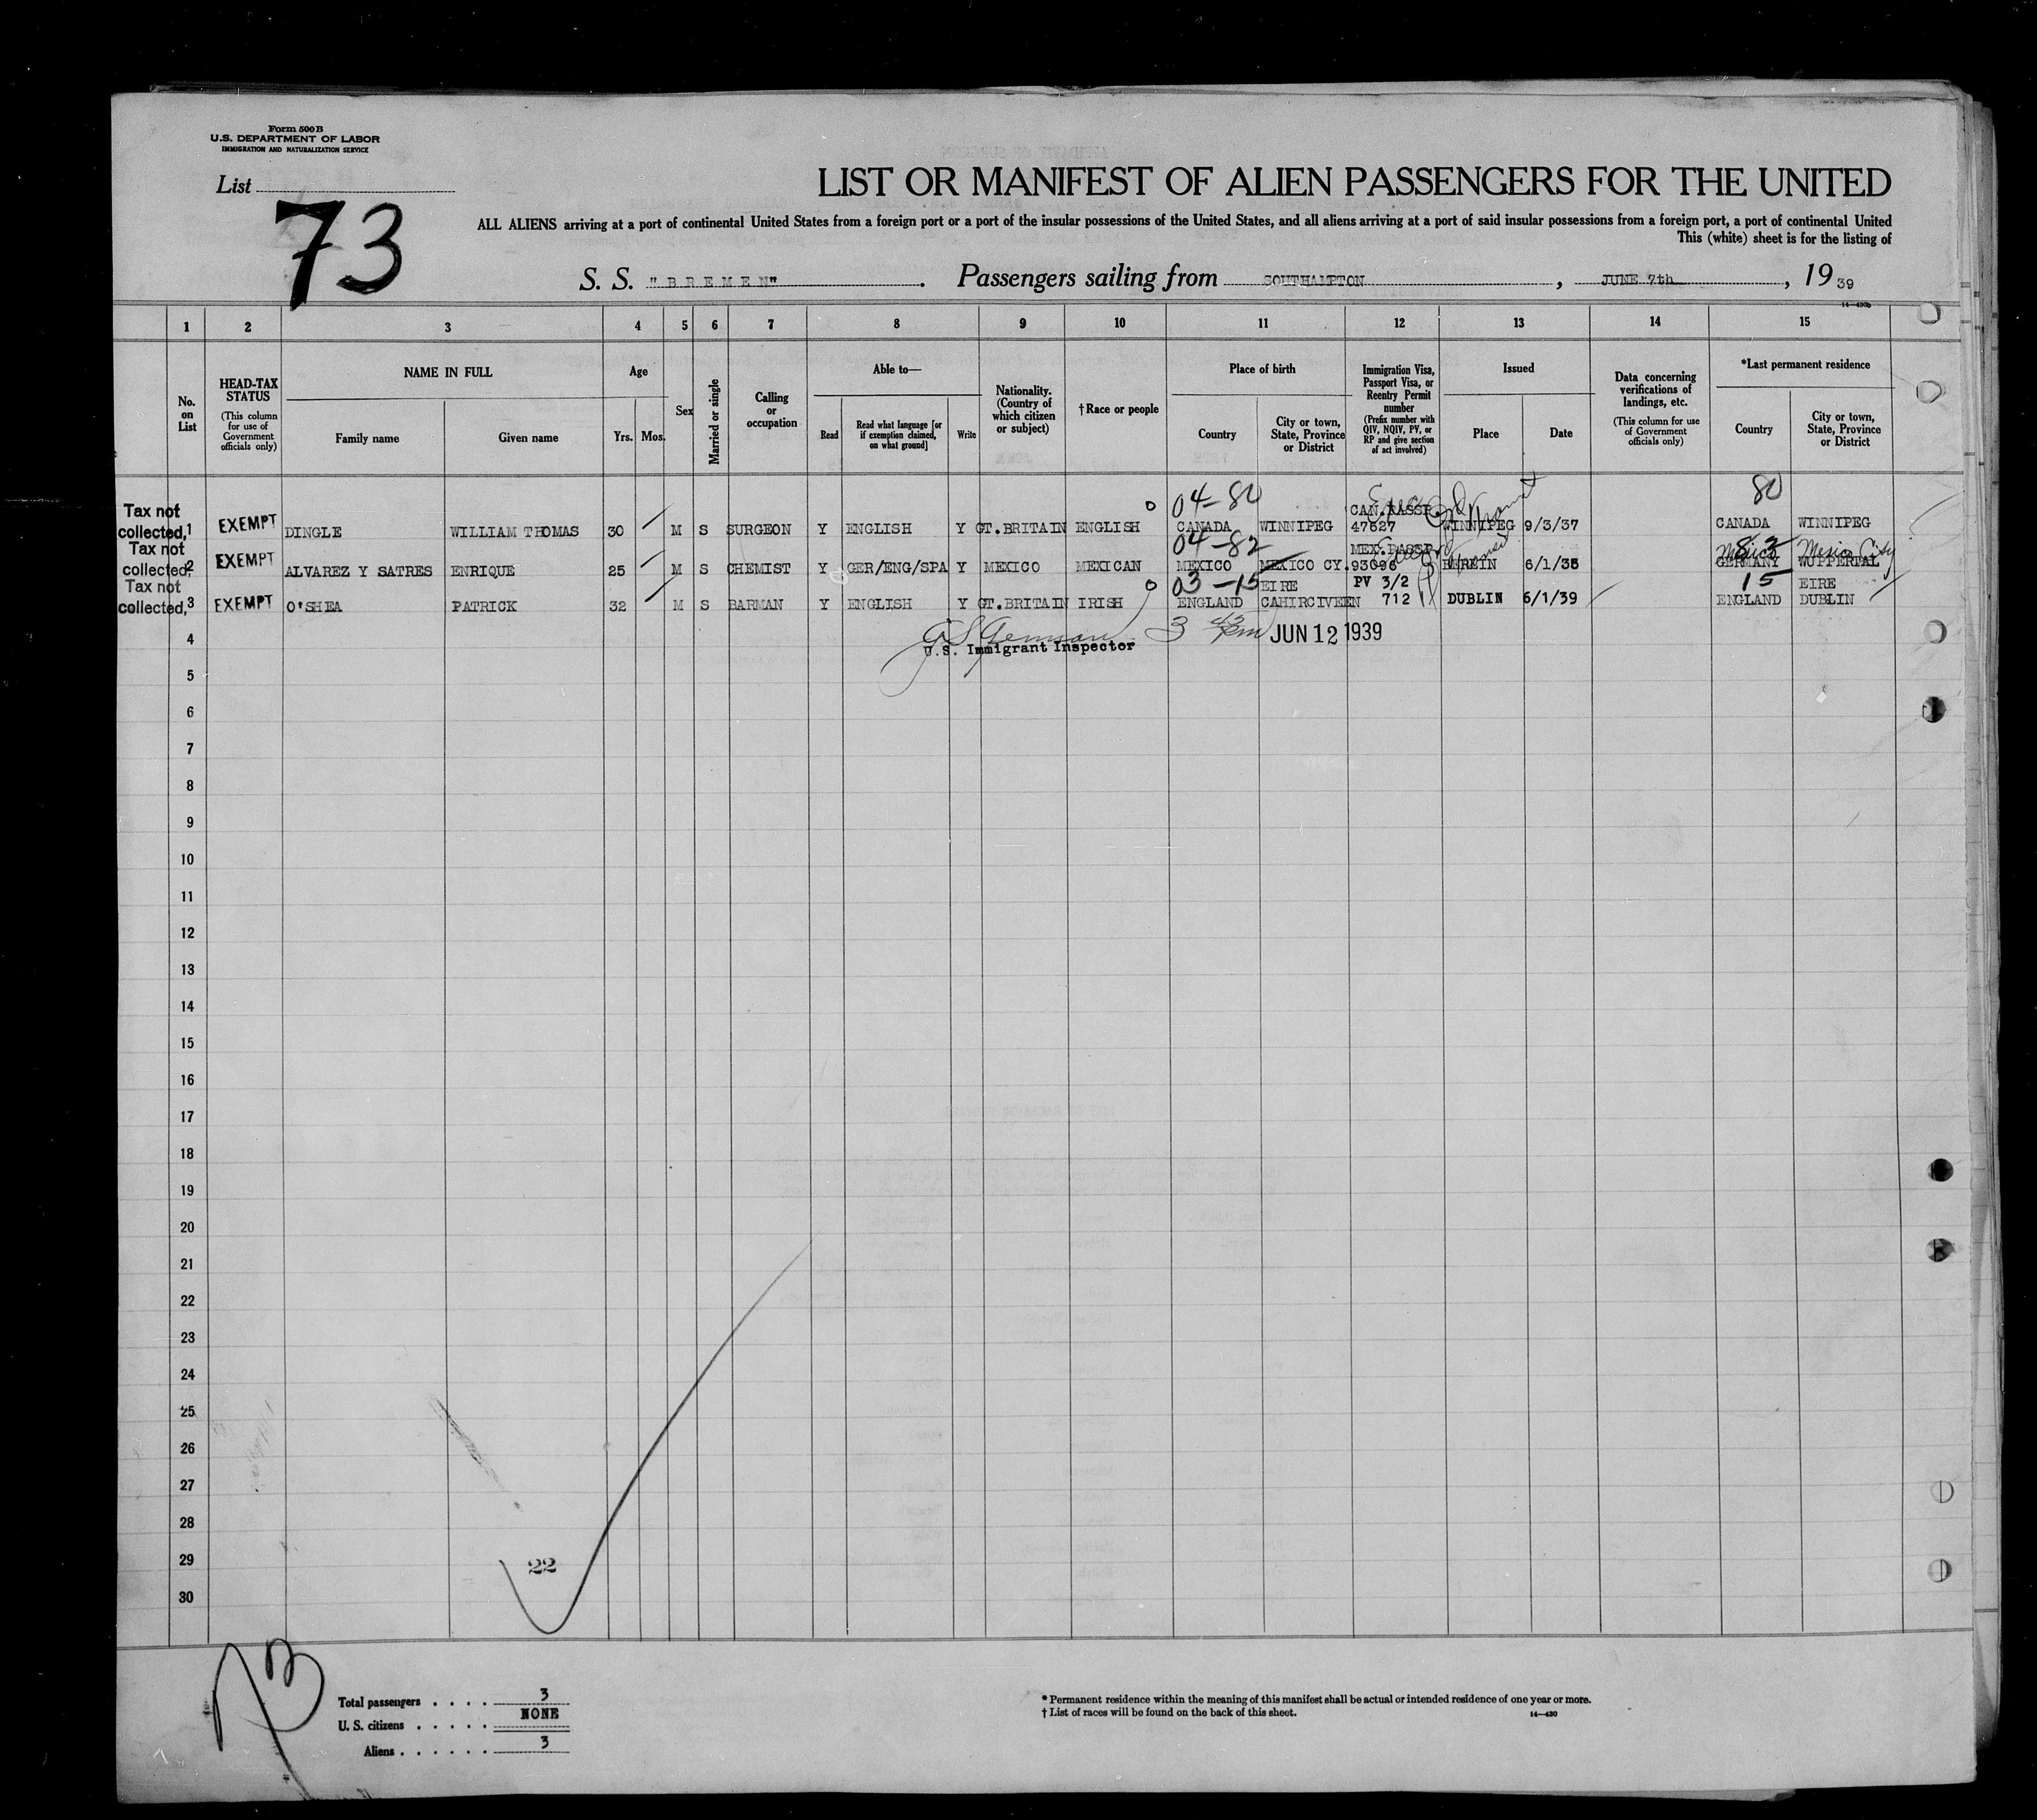 Form 500B
U.S. DEPARTMENT OF LABOR
IMMIGRATION AND NATURALIZATION SERVICE
List
73
LIST OR MANIFEST OF ALIEN PASSENGERS FOR THE UNITED
ALL ALIENS arriving at a port of continental United States from a foreign port or a port of the insular possessions of the United States, and all aliens arriving at a port of said insular possessions from a foreign port, a port of continental United
This (white) sheet is for the listing of
S. S. "BREMEN". Passengers sailing from SOUTHAMPTON, JUNE 7th, 19 39
14-430b
1 2 3 4 5 6 7 8 9 10 11 12 13 14 15
No. on List
HEAD-TAX STATUS
(This column for use of Government officials only)
NAME IN FULL
Family name Given name
Age
Yrs. Mos.
Sex
Married or single
Calling or occupation
Able to—
Read
Read what language [or if exemption claimed, on what ground]
Write
Nationality. (Country of which citizen or subject)
†Race or people
Place of birth
Country
City or town, State, Province or District
Immigration Visa, Passport Visa, or Reentry Permit number
(Prefix number with QIV, NQIV, PV, or RP and give section of act involved)
Issued
Place Date
Data concerning verifications of landings, etc.
(This column for use of Government officials only)
*Last permanent residence
Country
City or town, State, Province or District
04-80 80
Tax not CAN.PASSP.
collected, 1 EXEMPT DINGLE WILLIAM THOMAS 30 M S SURGEON Y ENGLISH Y GT.BRITAIN ENGLISH CANADA WINNIPEG 47527 WINNIPEG 9/3/37 CANADA WINNIPEG
04-82 82
Tax not MEX.PASSP. Mexico Mexico City
collected, 2 EXEMPT ALVAREZ Y SATRES ENRIQUE 25 M S CHEMIST Y GER/ENG/SPA Y MEXICO MEXICAN MEXICO MEXICO CY. 93096 BERLIN 6/1/38 GERMANY WUPPERTAL
Tax not 03-15 EIRE PV 3/2 15 EIRE
collected, 3 EXEMPT O'SHEA PATRICK 32 M S BARMAN Y ENGLISH Y GT.BRITAIN IRISH ENGLAND CAHIRCIVEEN 712 DUBLIN 6/1/39 ENGLAND DUBLIN
4 JUN 12 1939
U.S. Immigrant Inspector
5
6
7
8
9
10
11
12
13
14
15
16
17
18
19
20
21
22
23
24
25
26
27
28
29
22
30
73
Total passengers . . . . 3
U. S. citizens . . . . . NONE
Aliens . . . . . . 3
* Permanent residence within the meaning of this manifest shall be actual or intended residence of one year or more.
† List of races will be found on the back of this sheet. 14-430